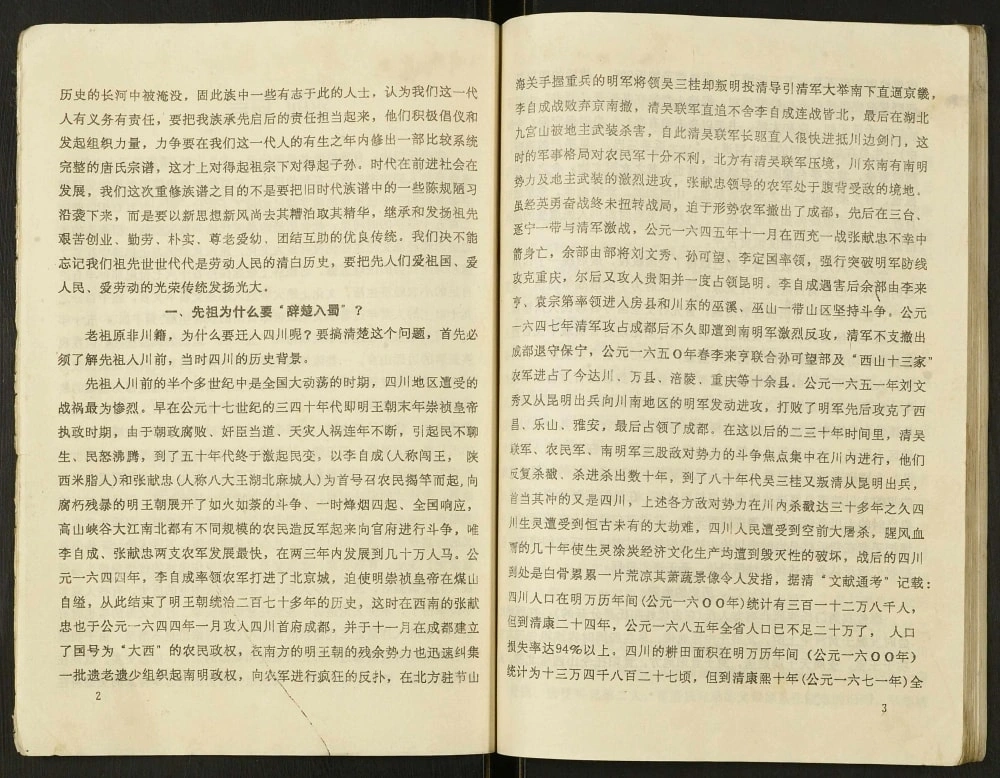 历史的长河中被淹没，固此族中一些有志于此的人士，认为我们这一代
人有义务有责任，要把我族承先启后的责任担当起来，他们积极倡仪和
发起组织力量，力争要在我们这一代人的有生之年内修出一部比较系统
完整的唐氏宗谱，这才上对得起祖宗下对得起子孙。时代在前进社会在
发展，我们这次重修族谱之目的不是要把旧时代族谱中的一些陈规陋习
沿袭下来，而是要以新思想新风尚去其糟泊取其精华，继承和发扬祖先
艰苦创业、勤劳、朴实、尊老爱幼、团结互助的优良传统。我们决不能
忘记我们祖先世世代代是劳动人民的清白历史，要把先人们爱祖国、爱
人民、爱劳动的光荣传统发扬光大。
一、先祖为什么要“辞楚入蜀”？
老祖原非川籍，为什么要迁人四川呢？要搞清楚这个问题，首先必
须了解先祖人川前，当时四川的历史背景。
先祖人川前的半个多世纪中是全国大动荡的时期，四川地区遭受的
战祸最为惨烈。早在公元十七世纪的三四十年代即明王朝末年崇祯皇帝
执政时期，由于朝政腐败、奸臣当道、天灾人祸连年不断，引起民不聊
生、民怒沸腾，到了五十年代终于激起民变，以李自成(人称闯王，陕
西米脂人)和张献忠(人称八大王湖北麻城人)为首号召农民揭竿而起，向
腐朽残暴的明王朝展开了如火如荼的斗争、一时烽烟四起、全国响应，
高山峡谷大江南北都有不同规模的农民造反军起来向官府进行斗争，唯
李自成、张献忠两支农军发展最快，在两三年内发展到几十万人马。公
元一六四四年，李自成率领农军打进了北京城，迫使明崇祯皇帝在煤山
自缢，从此结束了明王朝统治二百七十多年的历史，这时在西南的张献
忠也于公元一六四四年一月攻人四川首府成都，并于十一月在成都建立
了国号为“大西”的农民政权，在南方的明王朝的残余势力也迅速纠集
一批遗老遗少组织起南明政权，向农军进行疯狂的反扑，在北方驻节山
2
海关手握重兵的明军将领吴三桂却叛明投清导引清军大举南下直逼京畿，
李自成战败弃京南撤，清吴联军直追不舍李自成连战皆北，最后在湖北
九宫山被地主武装杀害，自此清吴联军长驱直人很快进抵川边剑门，这
时的军事格局对农民军十分不利，北方有清吴联军压境，川东南有南明
势力及地主武装的激烈进攻，张献忠领导的农军处于腹背受政的境地。
虽经英勇奋战终未扭转战局，迫于形势农军撤出了成都，先后在三台、
遂宁一带与清军激战，公元一六四五年十一月在西充一战张献忠不幸中
箭身亡，余部由部将刘文秀、孙可望、李定国率领，强行突破明军防线
攻克重庆，尔后又攻人贵阳并一度占领昆明。李自成遇害后余部由李来
亨、袁宗第率领进人房县和川东的巫溪、巫山一带山区坚持斗争。公元
一六四七年清军攻占成都后不久即遭到南明军激烈反攻，清军不支撤出
成都退守保宁，公元一六五０年春李来亨联合孙可望部及“西山十三家”
农军进占了今达川、万县、涪陵、重庆等十余县。公元一六五一年刘文
秀又从昆明出兵向川南地区的明军发动进攻，打败了明军先后攻克了西
昌、乐山、雅安，最后占领了成都。在这以后的二三十年时间里，清吴
联军、农民军、南明军三股政对势力的斗争焦点集中在川内进行，他们
反复杀戳、杀进杀出数十年，到了八十年代吴三桂又叛清从昆明出兵，
首当其冲的又是四川，上述各方敌对势力在川内杀戳达三十多年之久四
川生灵遭受到恒古未有的大劫难，四川人民遭受到空前大屠杀，腥风血
雨的几十年使生灵涂炭经济文化生产均遭到毁灭性的破坏，战后的四川
到处是白骨累累一片荒凉其萧蔬景像令人发指，据清“文献通考”记载：
四川人口在明万历年间(公元一六００年)统计有三百一十二万八千人，
但到清康二十四年，公元一六八五年全省人口已不足二十万了， 人口
损失率达94%以上。四川的耕田面积在明万历年间（公元一六００年）
统计为十三万四千八百二十七顷，但到清康熙十年(公元一六七一年)全
3